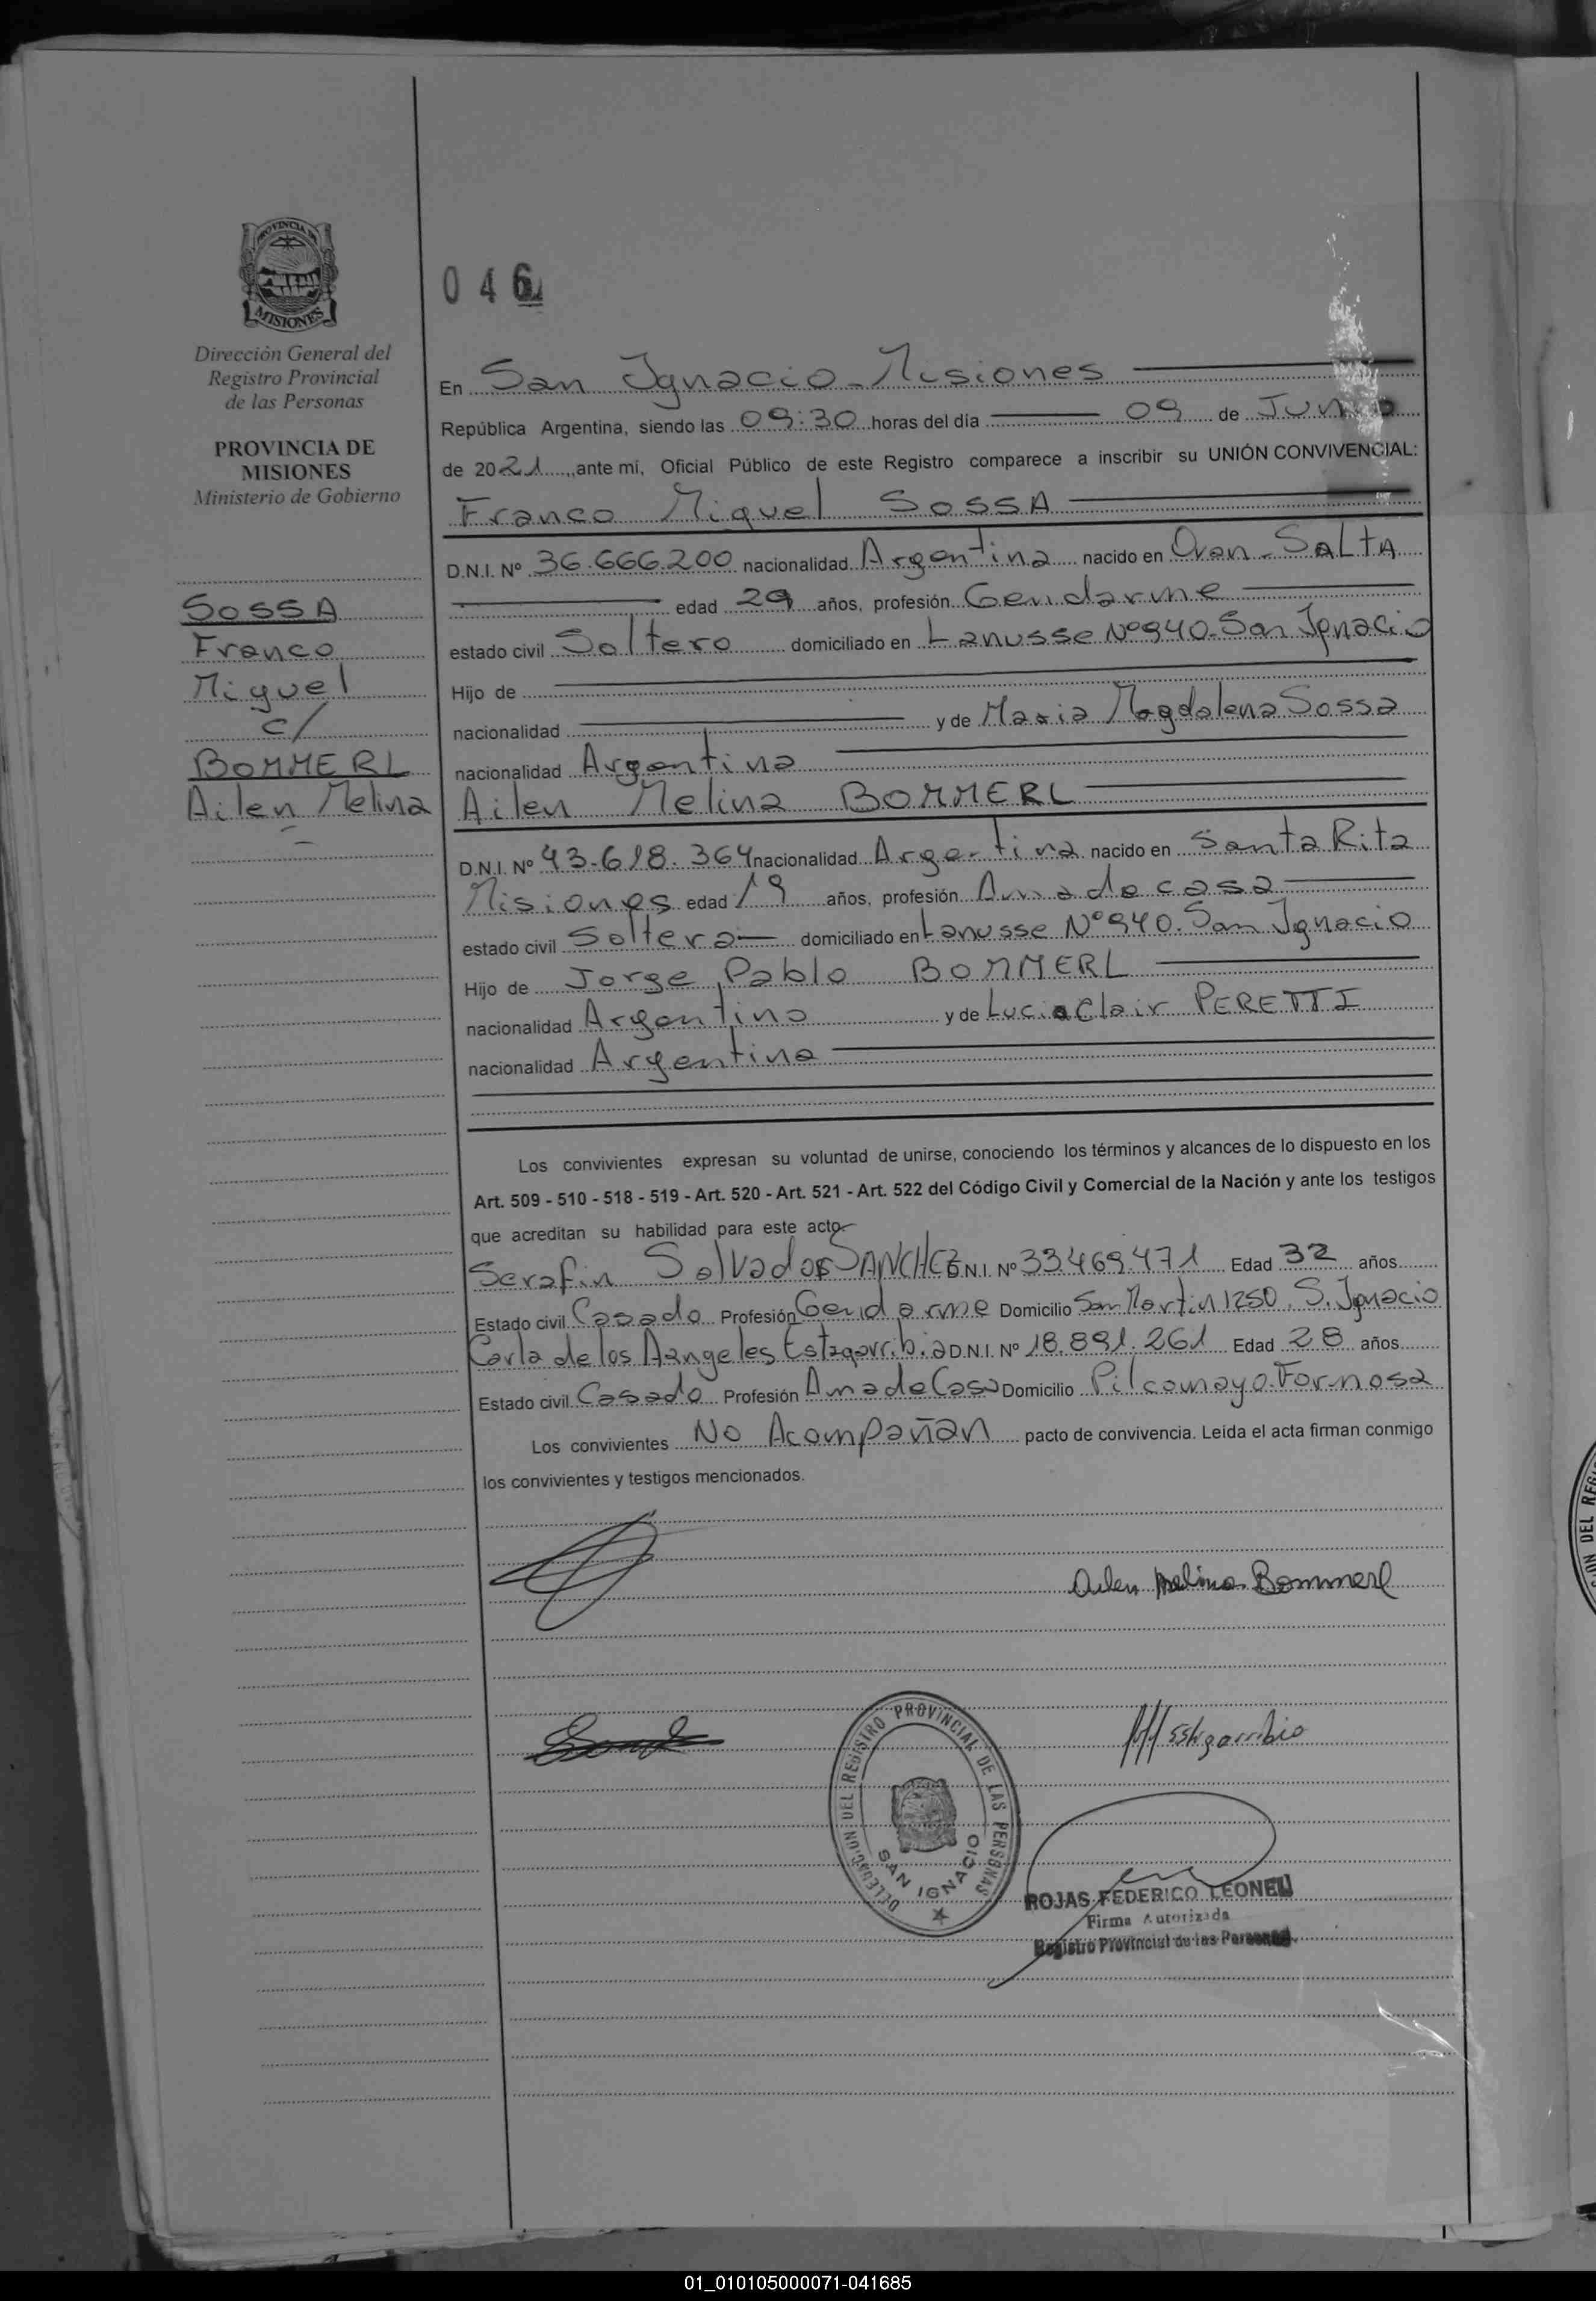 PROVINCIA DE
MISIONES
Dirección General del
Registro Provincial
de las Personas
PROVINCIA DE
MISIONES
Ministerio de Gobierno
SOSSA
Franco
Miguel
c/
BOMMERL
Ailen Melina
046
En San Ignacio - Misiones
República Argentina, siendo las 09:30 horas del día 09 de Junio
de 2021, ante mí, Oficial Público de este Registro comparece a inscribir su UNIÓN CONVIVENCIAL:
Franco Miguel SOSSA
D.N.I. Nº 36.666.200 nacionalidad Argentina nacido en Oran - SALTA
edad 29 años, profesión Gendarme
estado civil Soltero domiciliado en Lanusse Nº 940 - San Ignacio
Hijo de
nacionalidad y de Maria Magdalena Sossa
nacionalidad Argentina
Ailen Melina BOMMERL
D.N.I. Nº 43.618.364 nacionalidad Argentina nacido en Santa Rita
Misiones edad 19 años, profesión Ama de casa
estado civil Soltera domiciliado en Lanusse Nº 940. San Ignacio
Hijo de Jorge Pablo BOMMERL
nacionalidad Argentino y de Lucia Clair PERETTI
nacionalidad Argentina
Los convivientes expresan su voluntad de unirse, conociendo los términos y alcances de lo dispuesto en los
Art. 509 - 510 - 518 - 519 - Art. 520 - Art. 521 - Art. 522 del Código Civil y Comercial de la Nación y ante los testigos
que acreditan su habilidad para este acto
Serafin Salvador SANCHEZ D.N.I. Nº 33.469.471 Edad 32 años
Estado civil Casado Profesión Gendarme Domicilio San Martin 1250, S. Ignacio
Carla de los Aangeles Estigarribia D.N.I. Nº 18.891.261 Edad 28 años
Estado civil Casado Profesión Ama de Casa Domicilio Pilcomayo - Formosa
Los convivientes No Acompañan pacto de convivencia. Leída el acta firman conmigo
los convivientes y testigos mencionados.
Ailen Melina Bommerl
Estigarribia
DELEGACION DEL REGISTRO PROVINCIAL DE LAS PERSONAS
SAN IGNACIO
ROJAS FEDERICO LEONEL
Firma Autorizada
Registro Provincial de las Personas
01_010105000071-041685